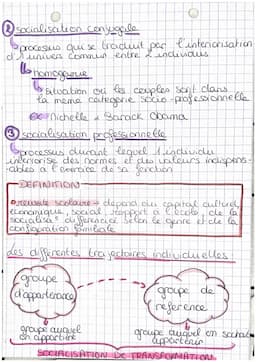 ② socialisation conjugale
processus qui se traduit par l'intériorisation
d'1 univers commun entre 2 individus
homogamie
situation où les couples sont dans
la même catégorie socio-professionnelle
ex Michelle & Barack Obama
③ socialisation professionnelle
processus durant lequel 1 individu
intériorise des normes et des valeurs indispens-
-ables à l'exercice de sa fonction
DEFINITION
réussite scolaire → dépend du capital culturel,
économique, social, rapport à l'école, de la
socialisat° différenciée selon le genre et de la
configuration familiale
Les différentes trajectoires individuelles
groupe
d'appartenance
groupe de
reference
groupe auquel
on appartient
groupe auquel on souhaite
appartenir
SOCIALISATION DE TRANSFORMATION